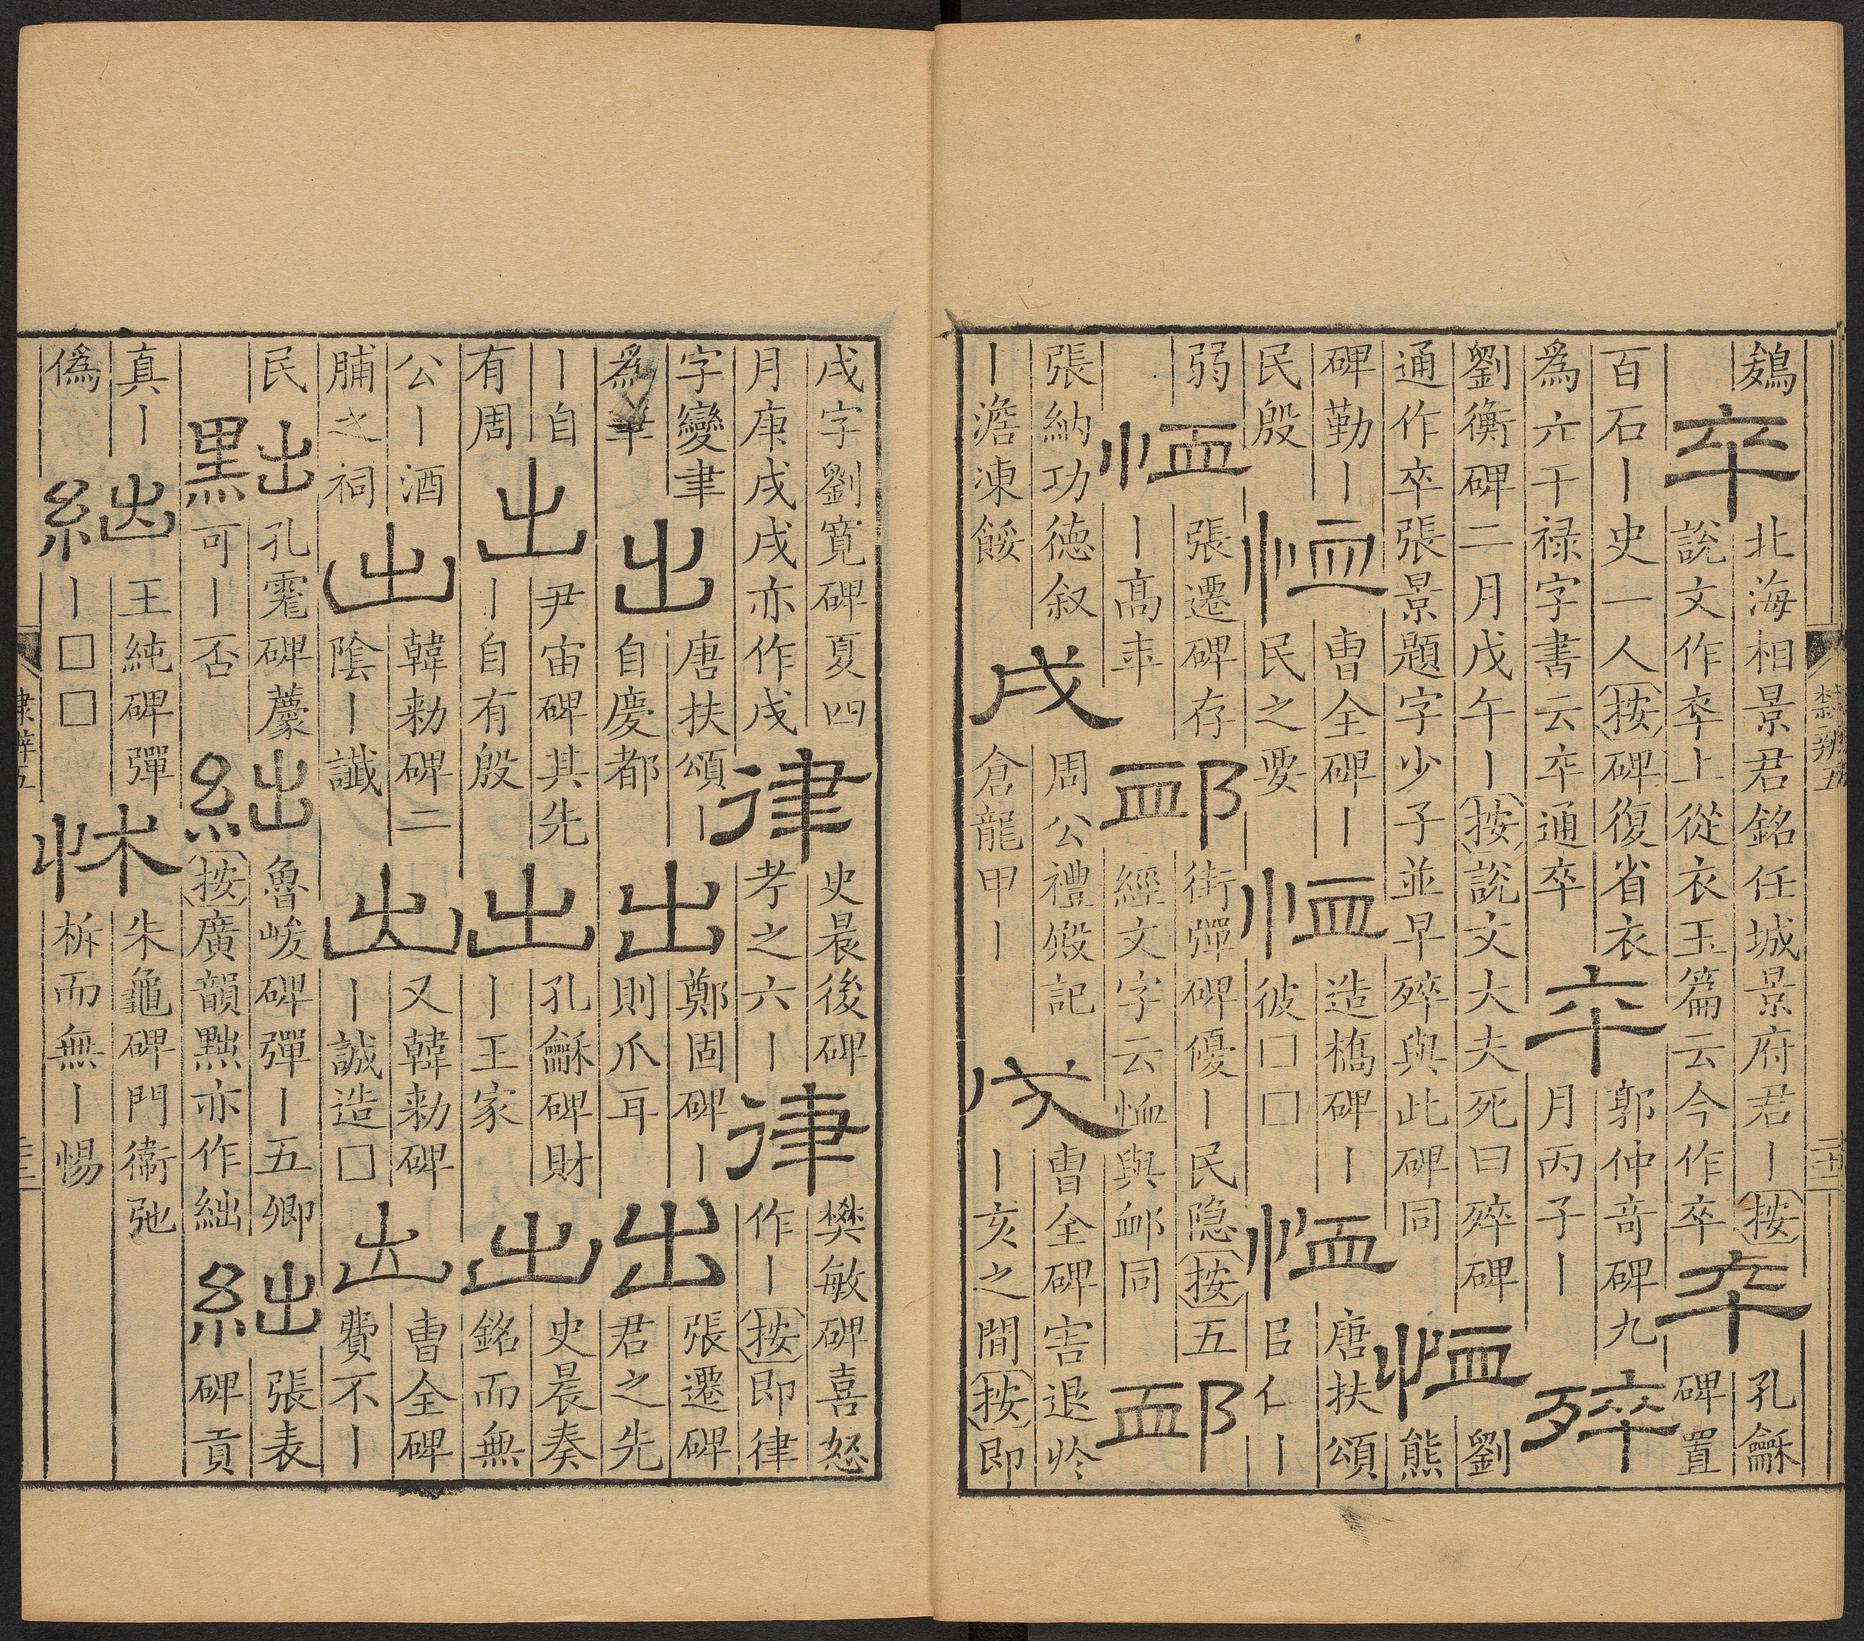 卒 北海相景君銘任城景府君丨按說文作卒上從衣玉篇云今作卒 卒 孔龢碑置
百石丨史一人按碑復省衣為六干祿字書云卒通卒 卒 郭仲竒碑九月丙子丨 𣨛 劉
衡碑二月戊午丨按說文大夫死曰𣨛碑通作卒張景題字少子並早𣨛與此碑同 恤 劉熊
碑勤丨民殷 恤 曹全碑丨民之要 恤 造橋碑丨彼□□ 恤 唐扶頌㠯仁丨
弱 恤 張遷碑存丨高年 卹 街彈碑優丨民隐按五經文字云恤與卹同 卹
張納功德叙丨澹凍餒 戌 周公禮殿記倉龍甲丨 戌 曹全碑害退於丨亥之間按即
隷辨五
戌字劉寬碑夏四月庚戌戌亦作戌 律 史晨後碑考之六丨 律 樊敏碑喜怒作丨按即律
字變聿為 出 唐扶頌丨自慶都 出 鄭固碑丨則爪耳 出 張遷碑君之先
丨自有周 出 尹宙碑其先丨自有殷 出 孔龢碑財丨王家 出 史晨奏銘而無
公丨酒脯之祠 出 韓勑碑二陰丨讖 出 又韓勑碑丨誠造□ 出 曹全碑費不丨
民 黜 孔碑可丨否 絀 魯峻碑彈丨五卿按廣韻黜亦作絀 絀 張表碑貢
真丨偽 絀 王純碑彈丨□□ 怵 朱龜碑門衞弛柝而無丨惕
隷辨五